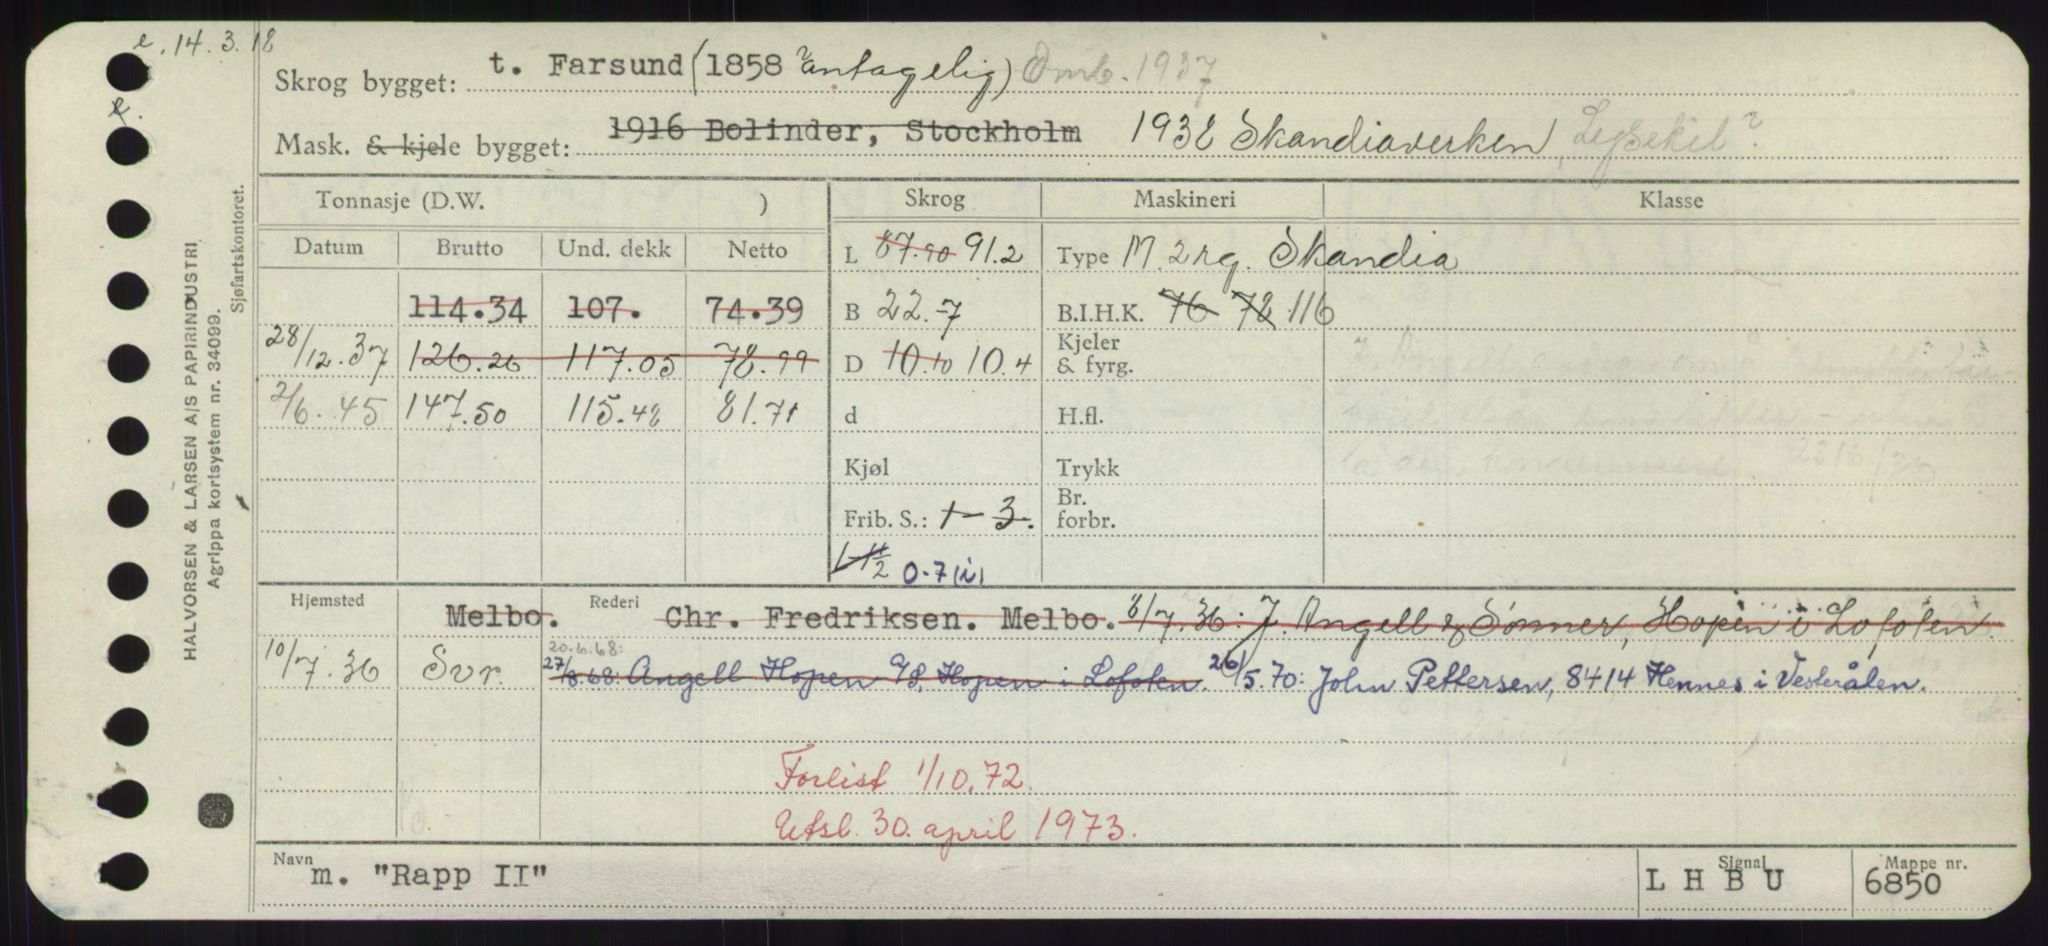 e. 14.3.18
Skrog bygget: t. Farsund (1858 antagelig) Omb. 1937
Mask. & kjele bygget: 1916 Bolinder, Stockholm 1938 Skandiaverken, Lysekil?
Tonnasje (D.W. ) Skrog Maskineri Klasse
Datum Brutto Und. dekk Netto
L 87.90 91.2 Type M. 2 rg. Skandia
114.34 107. 74.39 B 22.7 B.I.H.K. 76 78 116
28/12.37 126.26 117.05 78.99 D 10.10 10.4 Kjeler & fyrg.
2/6.45 147.50 115.48 81.71 d H.fl.
Kjøl Trykk
Frib. S.: 1-3. Br. forbr.
1-1 1/2 0-7 (i)
Hjemsted Melbo. Rederi Chr. Fredriksen. Melbo. 8/7.36: J. Angell & Sønner, Hopen i Lofoten.
20.6.68:
10/7.36 Svr. 27/8.68: Angell Hopen A/S, Hopen i Lofoten. 26/5.70: John Pettersen, 8414 Hennes i Vesterålen.
Forlist 1/10.72.
Utsl. 30. april 1973.
Navn m. "Rapp II" Signal L H B U Mappe nr. 6850
HALVORSEN & LARSEN A/S PAPIRINDUSTRI
Agrippa kortsystem nr. 34099.
Sjøfartskontoret.